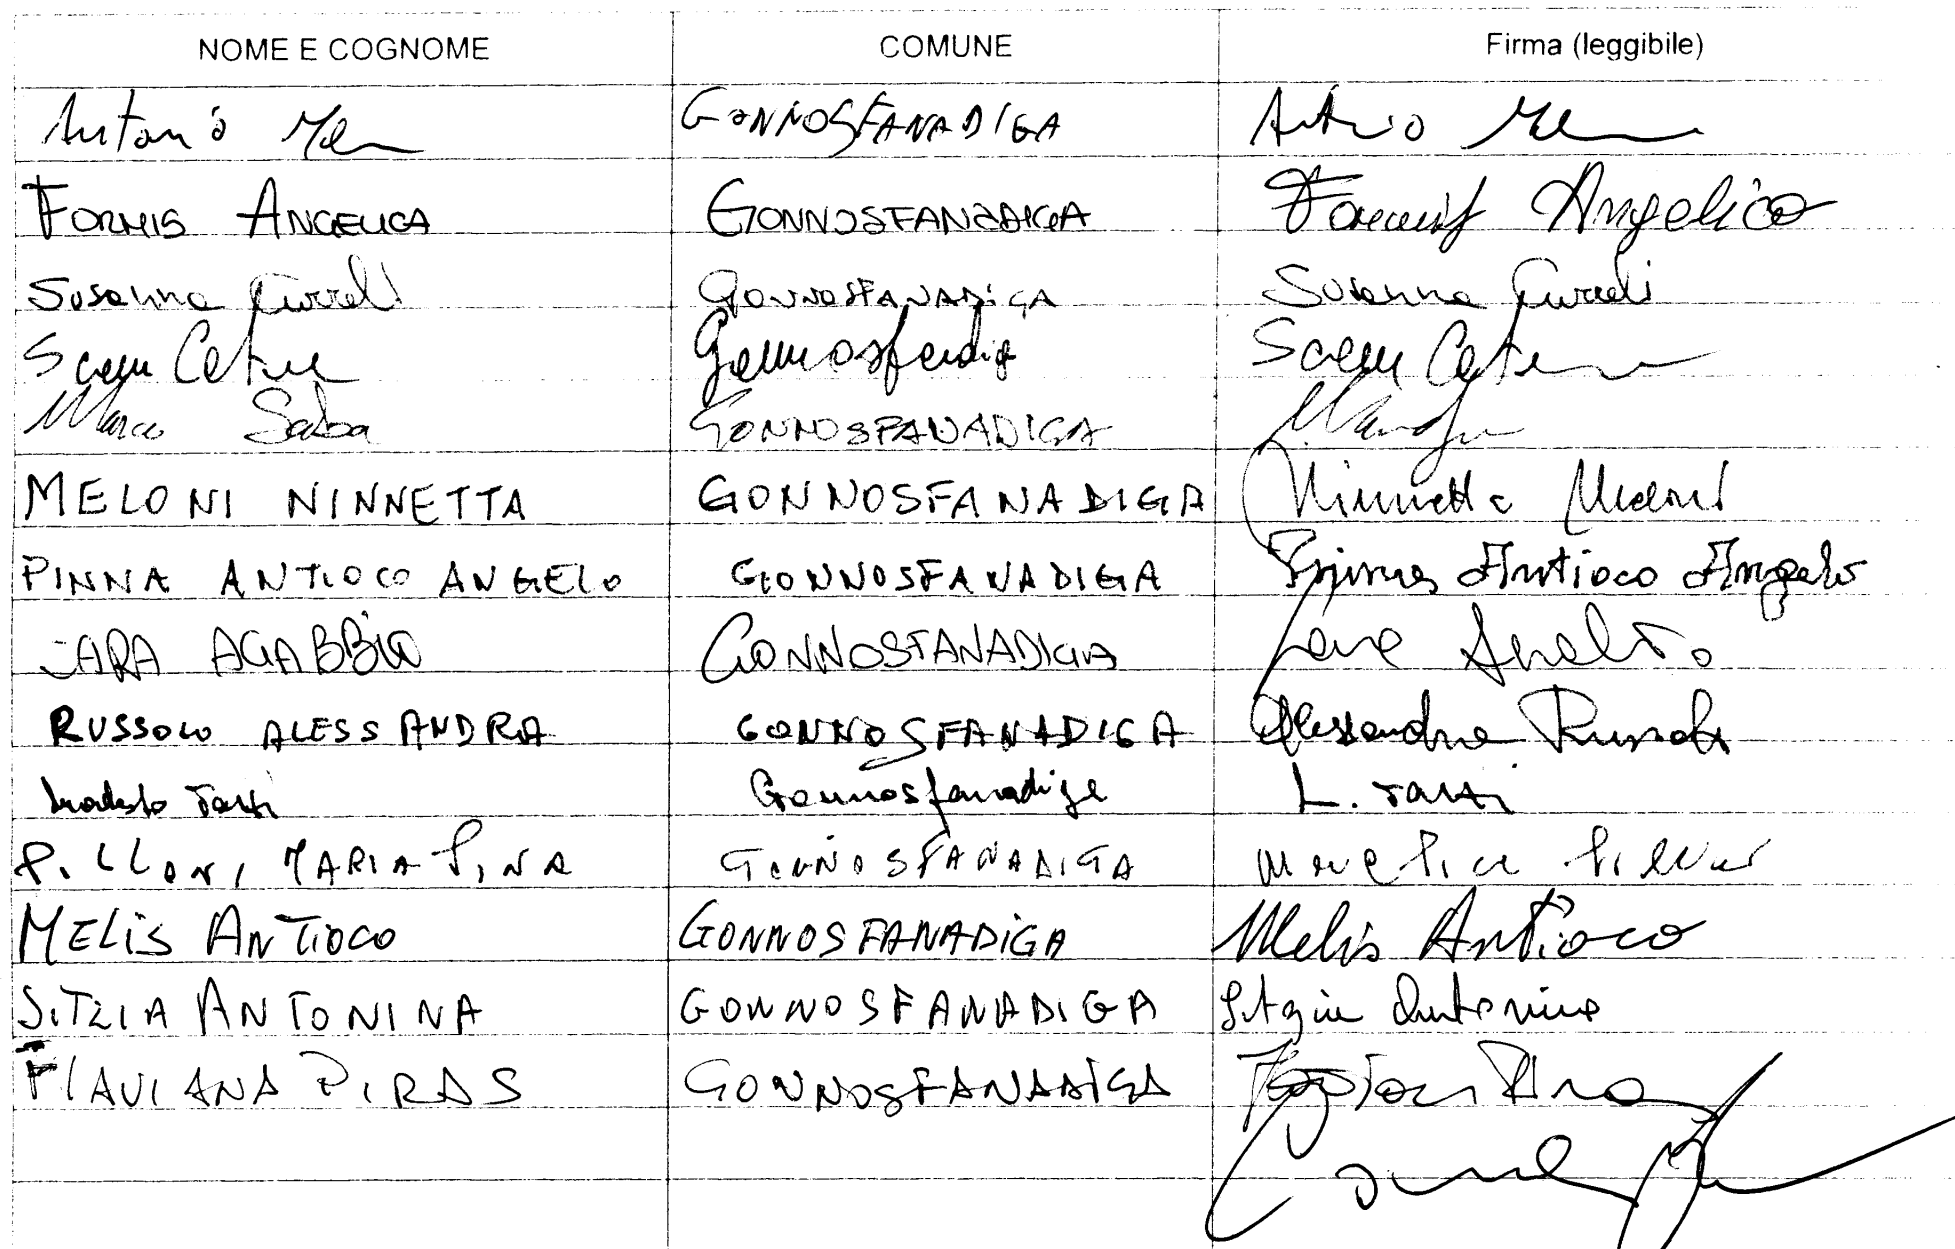 NOME E COGNOME COMUNE Firma (leggibile)
Antonio GONNOSFANADIGA
FORMIS ANGELICA GONNOSFANADIGA Angelica
Susanna Curreli GONNOSFANADIGA Susanna Curreli
Scanu
Marco Saba GONNOSFANADIGA
MELONI NINNETTA GONNOSFANADIGA Ninnetta Meloni
PINNA ANTIOCO ANGELO GONNOSFANADIGA Pinna Antioco Angelo
AGABBIO GONNOSFANADIGA
RUSSOLO ALESSANDRA GONNOSFANADIGA Alessandra Russolo
Gonnosfanadiga L.
PILLONI MARIA PINA GONNOSFANADIGA
MELIS ANTIOCO GONNOSFANADIGA Melis Antioco
SITZIA ANTONINA GONNOSFANADIGA Sitzia Antonina
FLAVIANA PIRAS GONNOSFANADIGA